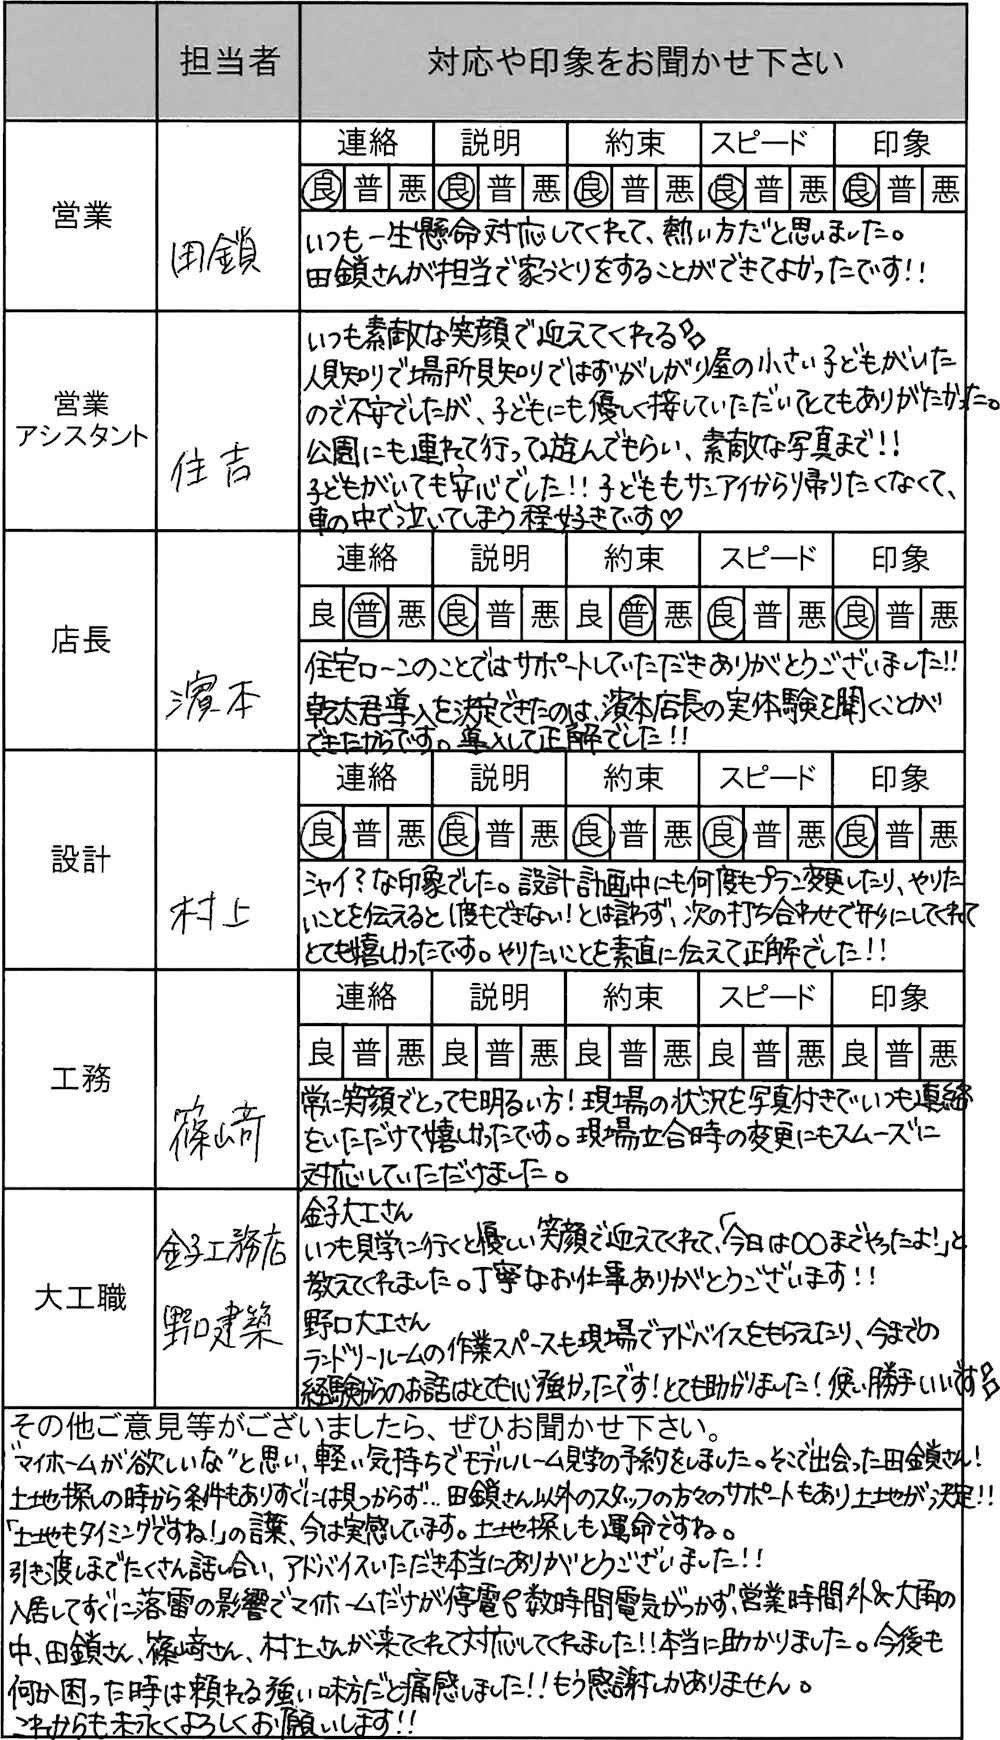 担当者 対応や印象をお聞かせ下さい
営業
田鎖
連絡 説明 約束 スピード 印象
良 普 悪 良 普 悪 良 普 悪 良 普 悪 良 普 悪
いつも一生懸命対応してくれて、熱い方だと思いました。
田鎖さんが担当で家づくりをすることができてよかったです!!
営業
アシスタント
住吉
いつも素敵な笑顔で迎えてくれる
人見知りで場所見知りではずかしがり屋の小さい子どもがいた
ので不安でしたが、子どもにも優しく接していただいてとてもありがたかった。
公園にも連れて行って遊んでもらい、素敵な写真まで!!
子どもがいても安心でした!!子どももサンアイから帰りたくなくて、
車の中で泣いてしまう程好きです♡
店長
濵本
連絡 説明 約束 スピード 印象
良 普 悪 良 普 悪 良 普 悪 良 普 悪 良 普 悪
住宅ローンのことではサポートしていただきありがとうございました!!
乾太君導入を決定できたのは、濵本店長の実体験を聞くことが
できたからです。導入して正解でした!!
設計
村上
連絡 説明 約束 スピード 印象
良 普 悪 良 普 悪 良 普 悪 良 普 悪 良 普 悪
シャイ?な印象でした。設計計画中にも何度もプラン変更したり、やりた
いことを伝えると1度もできない!とは言わず、次の打ち合わせで形にしてくれて
とても嬉しかったです。やりたいことを素直に伝えて正解でした!!
工務
篠﨑
連絡 説明 約束 スピード 印象
良 普 悪 良 普 悪 良 普 悪 良 普 悪 良 普 悪
常に笑顔でとっても明るい方!現場の状況を写真付きでいつも連絡
をいただけて嬉しかったです。現場立合時の変更にもスムーズに
対応していただけました。
大工職
金子工務店
野口建築
金子大工さん
いつも見学に行くと優しい笑顔で迎えてくれて、「今日は○○までやったよ!」と
教えてくれました。丁寧なお仕事ありがとうございます!!
野口大工さん
ランドリールームの作業スペースも現場でアドバイスをもらえたり、今までの
経験からのお話はとても心強かったです!とても助かりました!使い勝手いいです
その他ご意見等がございましたら、ぜひお聞かせ下さい。
"マイホームが欲しいな"と思い、軽い気持ちでモデルルーム見学の予約をしました。そこで出会った田鎖さん!
土地探しの時から条件もありすぐには見つからず…田鎖さん以外のスタッフの方々のサポートもあり土地が決定!!
「土地もタイミングですね!」の言葉、今は実感しています。土地探しも運命ですね。
引き渡しまでたくさん話し合い、アドバイスいただき本当にありがとうございました!!
入居してすぐに落雷の影響でマイホームだけが停電 数時間電気がつかず、営業時間外&大雨の
中、田鎖さん、篠﨑さん、村上さんが来てくれて対応してくれました!!本当に助かりました。今後も
何か困った時は頼れる強い味方だと痛感しました!!もう感謝しかありません。
これからも末永くよろしくお願いします!!